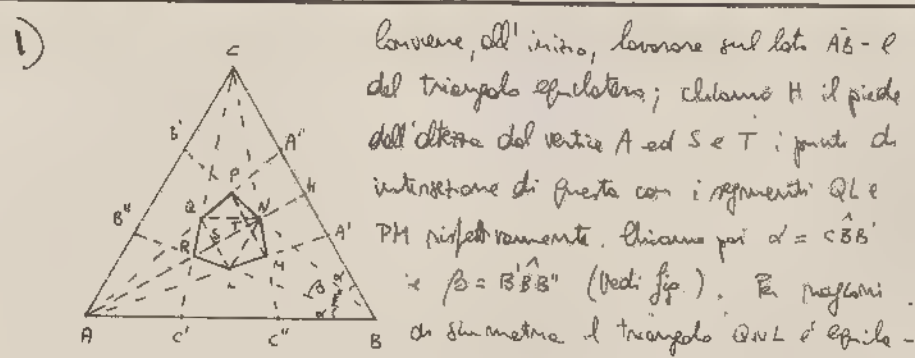 1)
Conviene, all' inizio, lavorare sul lato AB = l
del triangolo equilatero; chiamo H il piede
dell'altezza dal vertice A ed S e T i punti di
intersezione di questa con i segmenti QL e
PM rispettivamente. Chiamo poi α = CB̂B'
e β = B'B̂B" (Vedi fig.). Per ragioni
di simmetria il triangolo QNL è equila-
C
B'
A"
P
H
Q
N
B"
S
T
A'
R
M
L
β
α
α
A
C'
C"
B